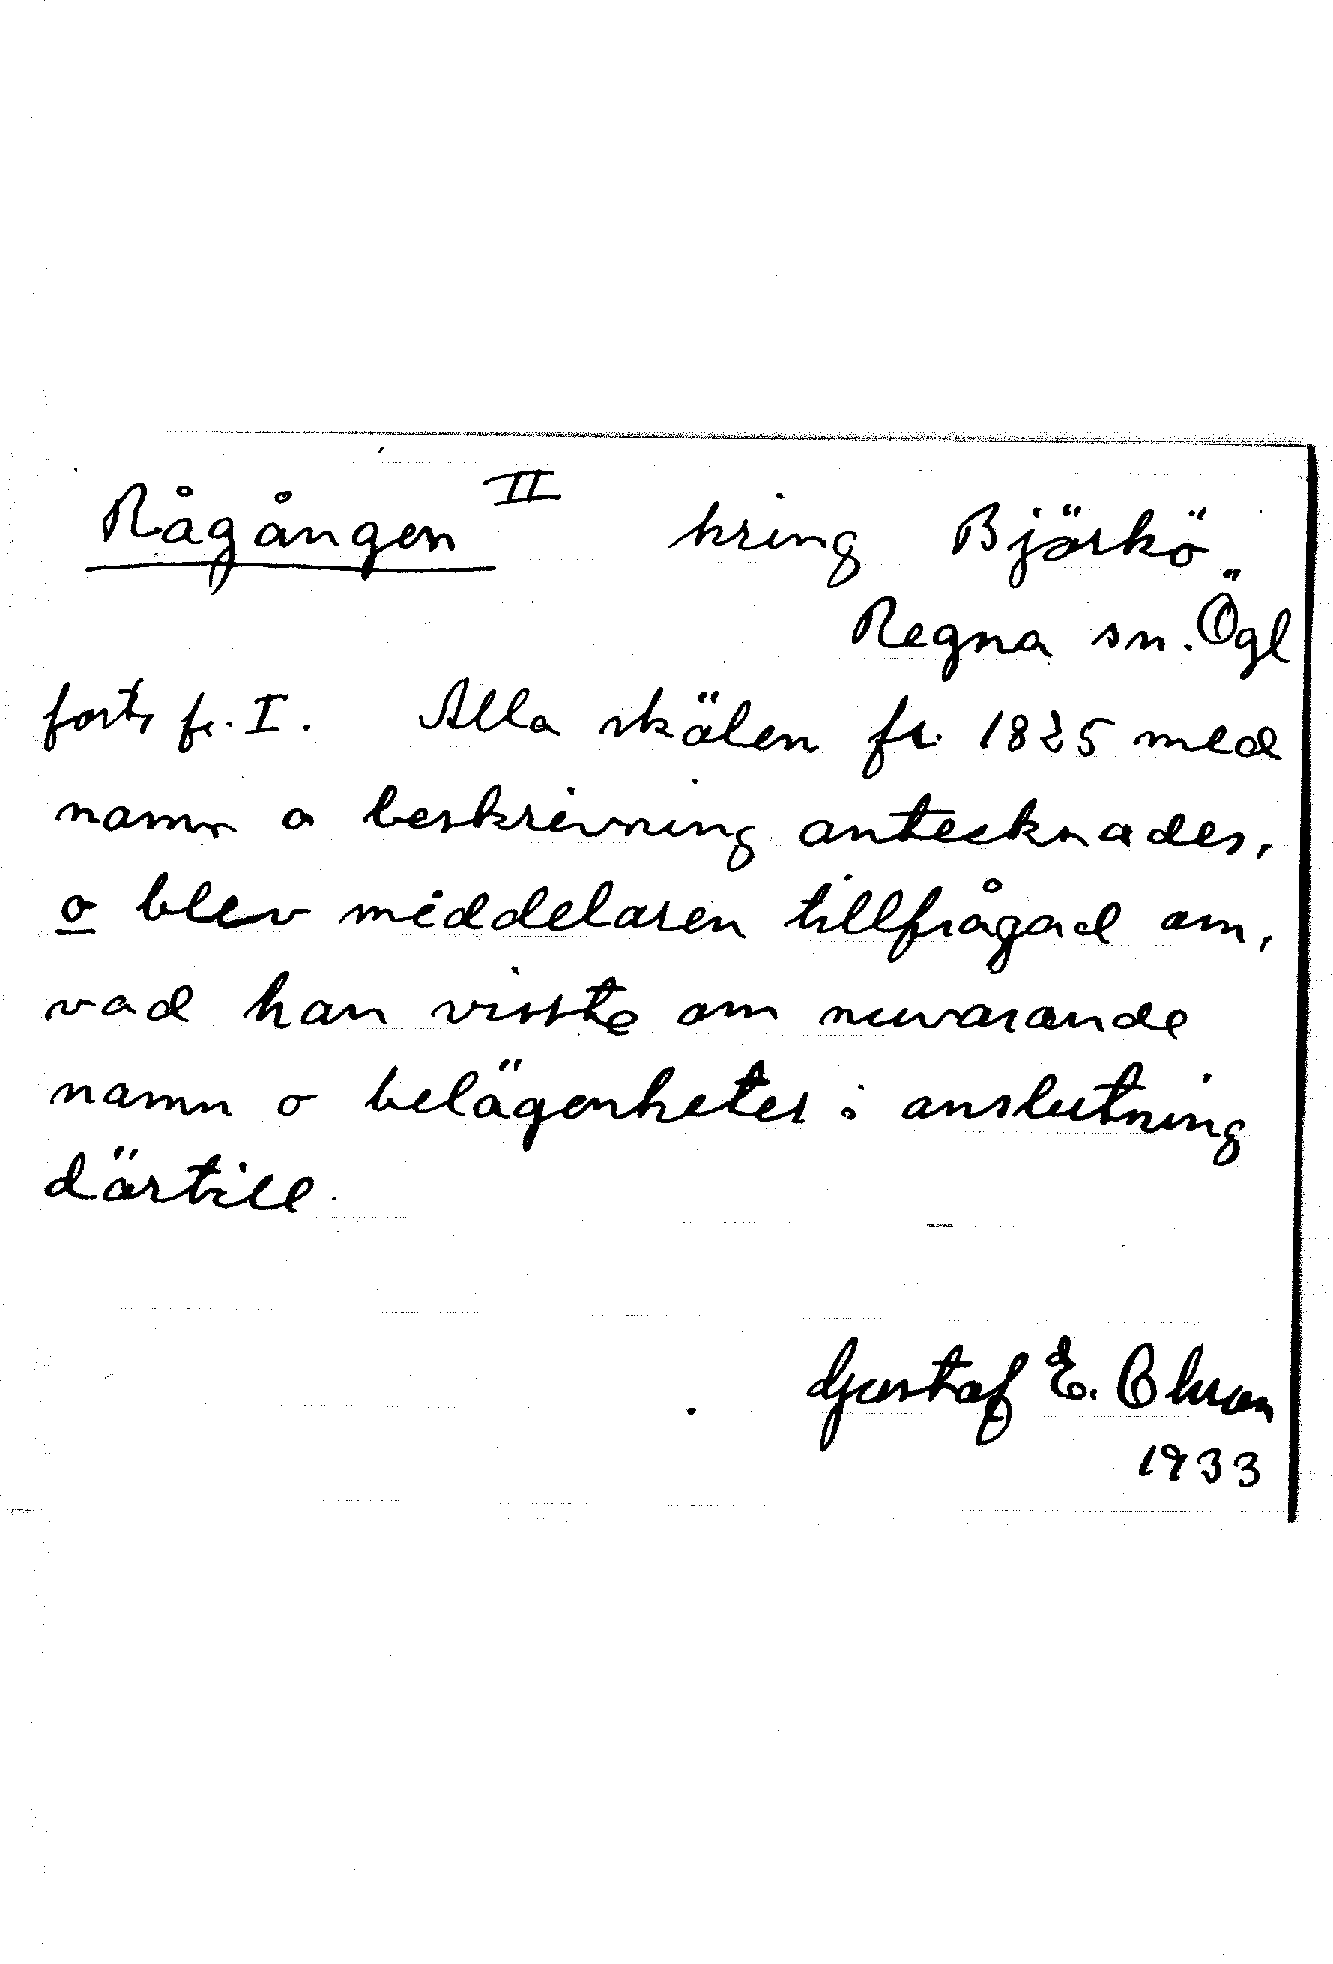 Rågången II kring Björkö
Regna sn. Ögl
forts fr. I. Alla skälen fr. 1825 med
namn o beskrivning antecknades,
o blev meddelaren tillfrågad om,
vad han visste om nuvarande
namn o belägenheter i anslutning
därtill.
Gustaf E.
1933